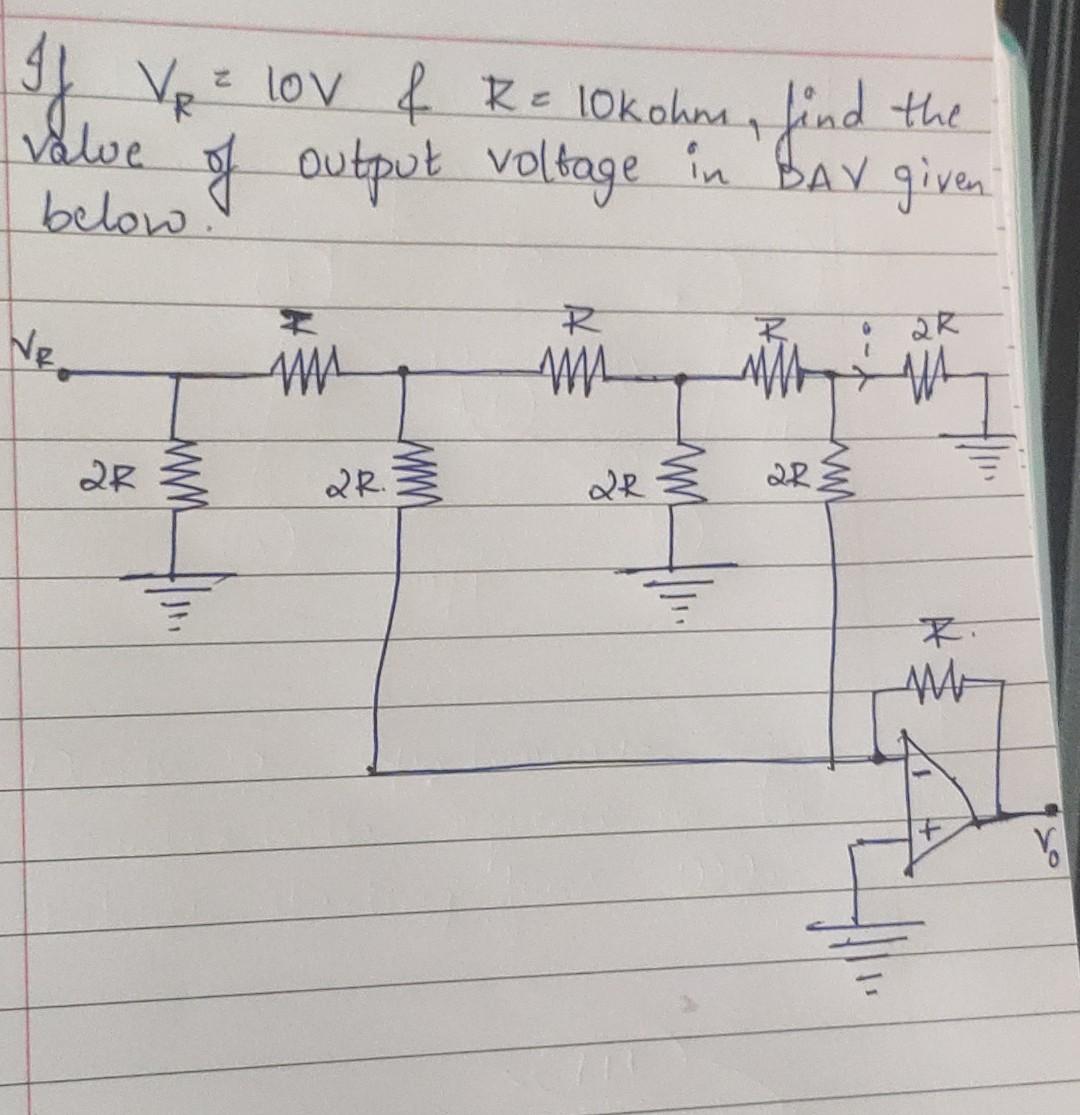 If VR = 10V & R = 10kohm, find the
value of output voltage in DAV given
below.
R R R i 2R
VR
2R 2R. 2R 2R
R.
-
+
Vo